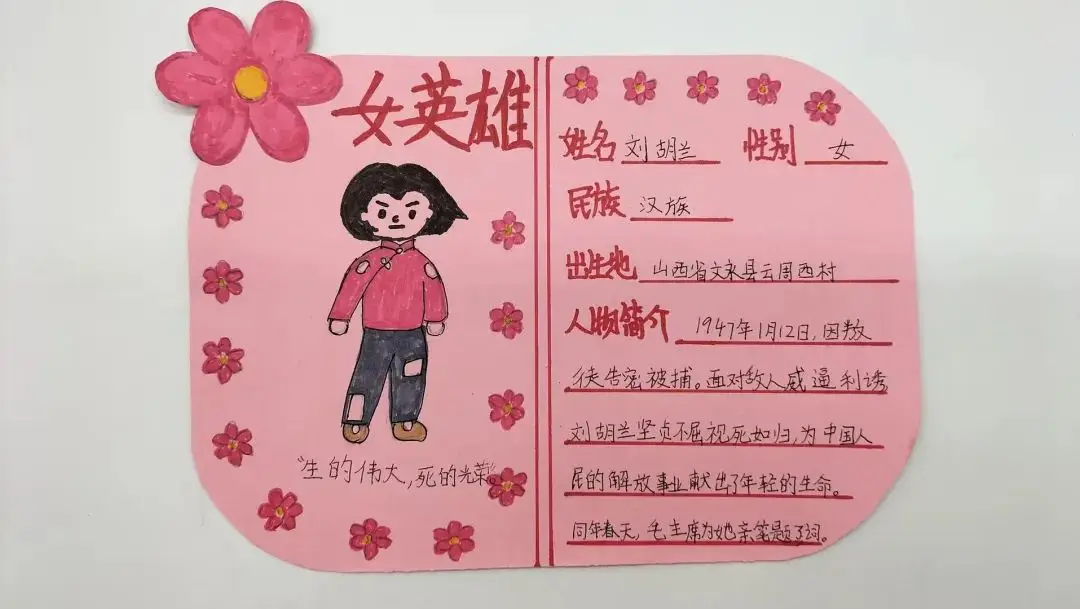 女英雄
"生的伟大,死的光荣"。
姓名 刘胡兰 性别 女
民族 汉族
出生地 山西省文水县云周西村
人物简介 1947年1月12日,因叛
徒告密被捕。面对敌人威逼利诱
刘胡兰坚贞不屈视死如归,为中国人
民的解放事业献出了年轻的生命。
同年春天,毛主席为她亲笔题了词。